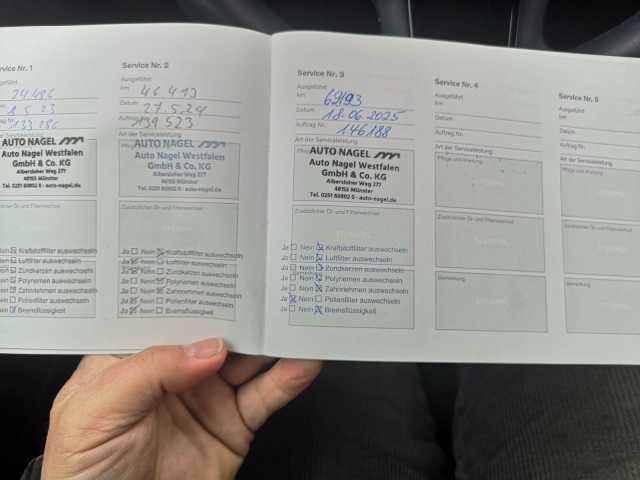 ervice Nr. 1
Ausgeführt
24486
133 186
AUTO NAGEL
Auto Nagel Westfalen
GmbH & Co. KG
Albersloher Weg 277
48155 Münster
Tel. 0251 60902 0 · auto-nagel.de
Zusätzlicher Öl- und Filterwechsel
Nein Kraftstofffilter auswechseln
Nein Luftfilter auswechseln
Nein Zündkerzen auswechseln
Nein Polyriemen auswechseln
Nein Zahnriemen auswechseln
Nein Pollenfilter auswechseln
Nein Bremsflüssigkeit
Service Nr. 2
Ausgeführt
km 46 413
Datum 27.5.24
Auftrag Nr. 139 523
Art der Serviceleistung
AUTO NAGEL
Auto Nagel Westfalen
GmbH & Co. KG
Albersloher Weg 277
48155 Münster
Tel. 0251 60902 0 · auto-nagel.de
Zusätzlicher Öl- und Filterwechsel
Ja Nein Kraftstofffilter auswechseln
Ja Nein Luftfilter auswechseln
Ja Nein Zündkerzen auswechseln
Ja Nein Polyriemen auswechseln
Ja Nein Zahnriemen auswechseln
Ja Nein Pollenfilter auswechseln
Ja Nein Bremsflüssigkeit
Service Nr. 3
Ausgeführt
km 62193
Datum 18.06.2025
Auftrag Nr. 146188
Art der Serviceleistung
AUTO NAGEL
Auto Nagel Westfalen
GmbH & Co. KG
Albersloher Weg 277
48155 Münster
Tel. 0251 60902 0 · auto-nagel.de
Zusätzlicher Öl- und Filterwechsel
Ja Nein Kraftstofffilter auswechseln
Ja Nein Luftfilter auswechseln
Ja Nein Zündkerzen auswechseln
Ja Nein Polyriemen auswechseln
Ja Nein Zahnriemen auswechseln
Ja Nein Pollenfilter auswechseln
Ja Nein Bremsflüssigkeit
Service Nr. 4
Ausgeführt
km
Datum
Auftrag Nr.
Art der Serviceleistung
Pflege und Wartung
Zusätzlicher Öl- und Filterwechsel
Bemerkung
Service Nr. 5
Ausgeführt
km
Datum
Auftrag Nr.
Art der Serviceleistung
Pflege und Wartung
Zusätzlicher Öl- und Filterwechsel
Bemerkung